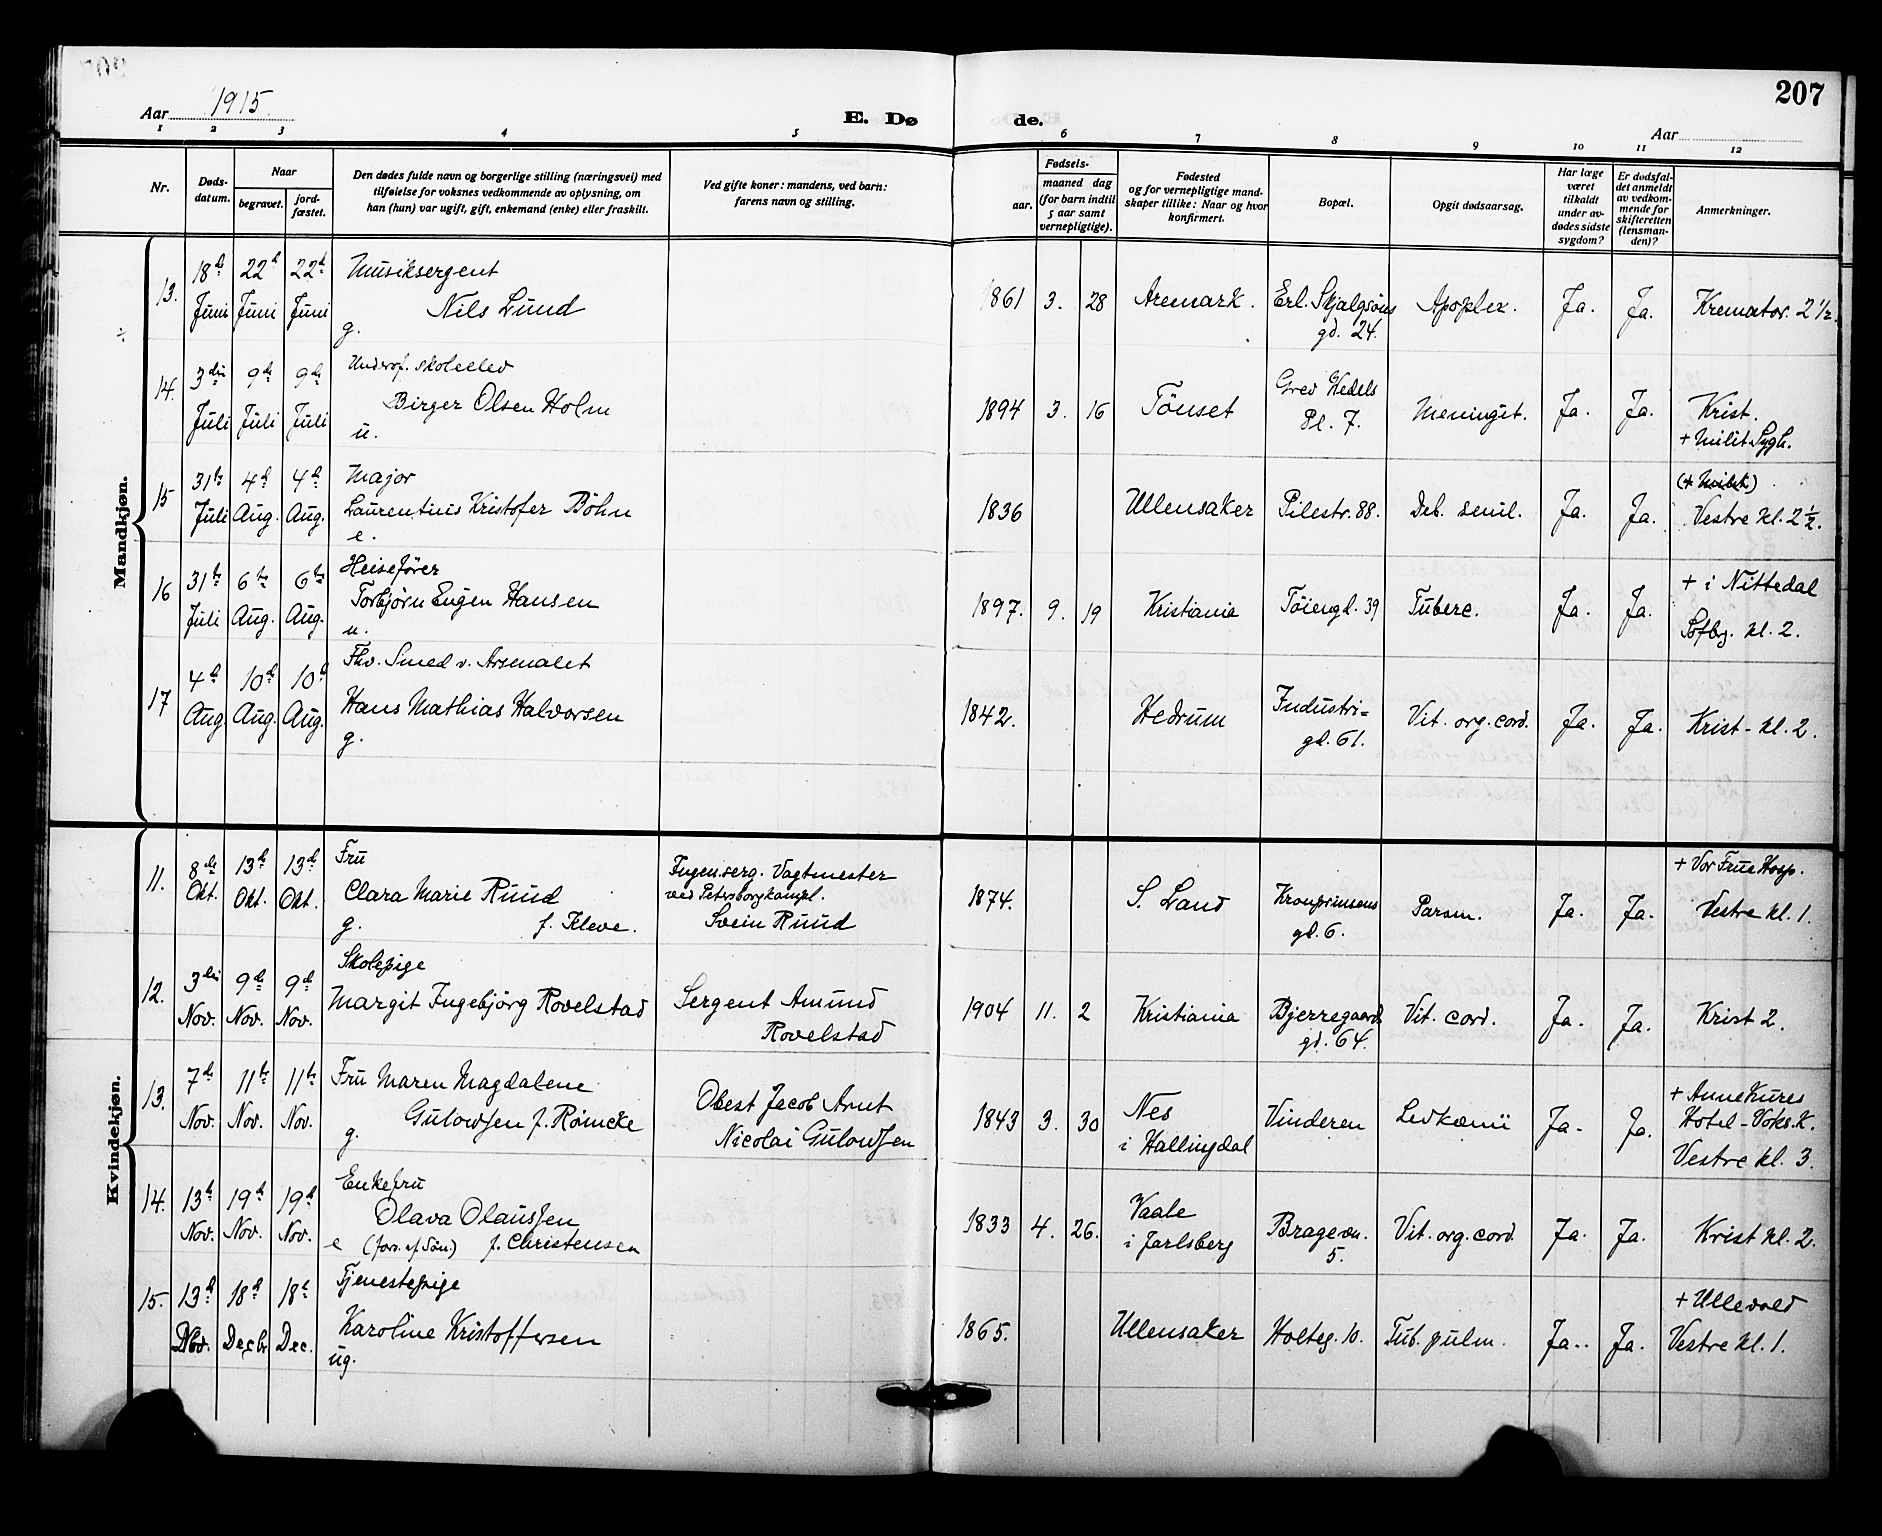 207
Aar 1915.
E. Dø de.
Aar
1 2 3 4 5 6 7 8 9 10 11 12
Nr.
Døds-
datum.
Naar
begravet.
jord-
fæstet.
Den dødes fulde navn og borgerlige stilling (næringsvei) med
tilføielse for voksnes vedkommende av oplysning, om
han (hun) var ugift, gift, enkemand (enke) eller fraskilt.
Ved gifte koner: mandens, ved barn:
farens navn og stilling.
Fødsels-
aar.
maaned dag
(for barn indtil
5 aar samt
vernepligtige).
Fødested
og for vernepligtige mand-
skaper tillike: Naar og hvor
konfirmert.
Bopæl.
Opgit dødsaarsag.
Har læge
været
tilkaldt
under av-
dødes sidste
sygdom?
Er dødsfal-
det anmeldt
av vedkom-
mende for
skifteretten
(lensman-
den)?
Anmerkninger.
Mandkjøn.
13. 18d Juni 22d Juni 22d Juni
Musiksergent
Nils Lund
g.
1861 3. 28 Aremark. Erl. Skjalgsøns
gd. 24. Apoplex. Ja. Ja. Kremator. 2 1/2.
14. 3die Juli 9de Juli 9de Juli
Underof. skoleelev
Birger Olsen Holm
u.
1894 3. 16 Tönset Grev Wedels
Pl. 7. Meningit. Ja. Ja. Krist.
+ Milit Sygh.
15 31te Juli 4d Aug. 4d Aug.
Major
Laurentius Kristofer Böhn
e.
1836 Ullensaker Pilestr. 88. Deb. senil. Ja. Ja. Vestre kl. 2 1/2.
16 31te Juli 6te Aug. 6te Aug.
Heisefører
Torbjørn Eugen Hansen
u.
1897. 9. 19 Kristiania Töiengd. 39 Tuberc. Ja. Ja. + i Nittedal
Sofbg. kl. 2.
17 4d Aug 10d Aug. 10d Aug.
Fhv. Smed v. Arsenalet
Hans Mathias Halvorsen
g.
1842. Hedrum Industri=
gd. 61. Vit. org. cord. Ja. Ja. Krist - kl. 2.
Kvindekjøn.
11. 8de Okt. 13d Okt. 13d Okt.
Fru
Clara Marie Ruud
g. f. Kleve.
Ingen.serg. Vagtmester
ved Petersborgkompl.
Svein Ruud
1874. S. Land Kronprinsens
gd. 6. Ja. Ja. + Vor Frue Hosp.
Vestre kl. 1.
12. 3die Nov. 9de Nov. 9d Nov.
Skolepige
Margit Ingebjörg Rovelstad
Sergent Amund
Rovelstad
1904 11. 2 Kristiania Bjerregaards
gd. 64. Vit. cord. Ja. Ja. Krist 2.
13. 7d Nov. 11te Nov. 11te Nov.
Fru Maren Magdalene
Gulowsen f. Römcke
g.
Obest Jacob Arnt
Nicolai Gulowsen
1843 3. 30 Nes
i Hallingdal Vinderen Levkæmi Ja. Ja. + Anne Kures
Hotel - Voks.K.
Vestre kl. 3.
14. 13d Nov. 19d Nov. 19d Nov.
Enkefru
Olava Olaussen
e (fors. af Søn.) f. Christensen
1833 4. 26. Vaale
i Jarlsberg Bragevn.
5. Vit. org. cord Ja. Ja. Krist kl. 2.
15. 13d 18d Decbr 18d Dec.
Tjenestepige
Karoline Kristoffersen
ug.
1865. Ullensaker Holteg. 10. Tub. pulm. Ja. Ja. + Ullevold
Vestre kl. 1.